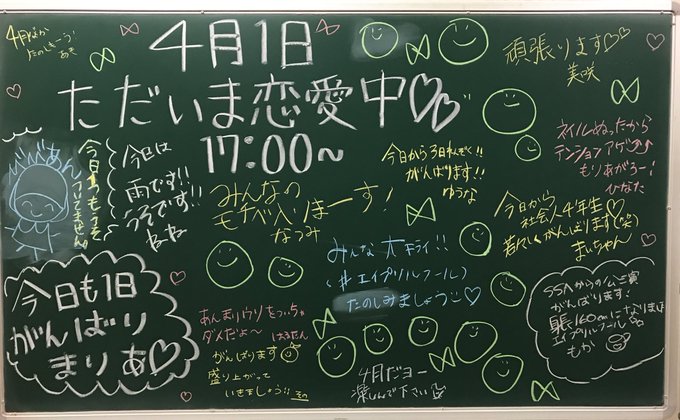 4月1日
ただいま恋愛中♡♡
17:00~
4月だよ
たのしもー!
あき
頑張ります♡♡
美咲
今日もうそ
ついてません。
今日は
雨です!!
うそです!!
ねね
みんなの
モチベいほーす!
なつみ
今日から3日れんぞく!!
がんばります!!
ゆうな
ネイルぬったから
テンションアゲ♪♪
もりあがろー!
ひなた
今日から
社会人4年生♡
若々しくがんばります(笑)
まいちゃん
みんな大キライ!!
(#エイプリルフール)
たのしみましょう♡
今日も1日
がんばり
まりあ♡
あんまりウソをついちゃ
ダメだよ〜 はるたん
がんばります
盛り上がって
いきましょう!! その
4月だヨー
楽しんで下さい
SSAからの公演
がんばります!
身長160cmになりました
エイプリルフール
もか